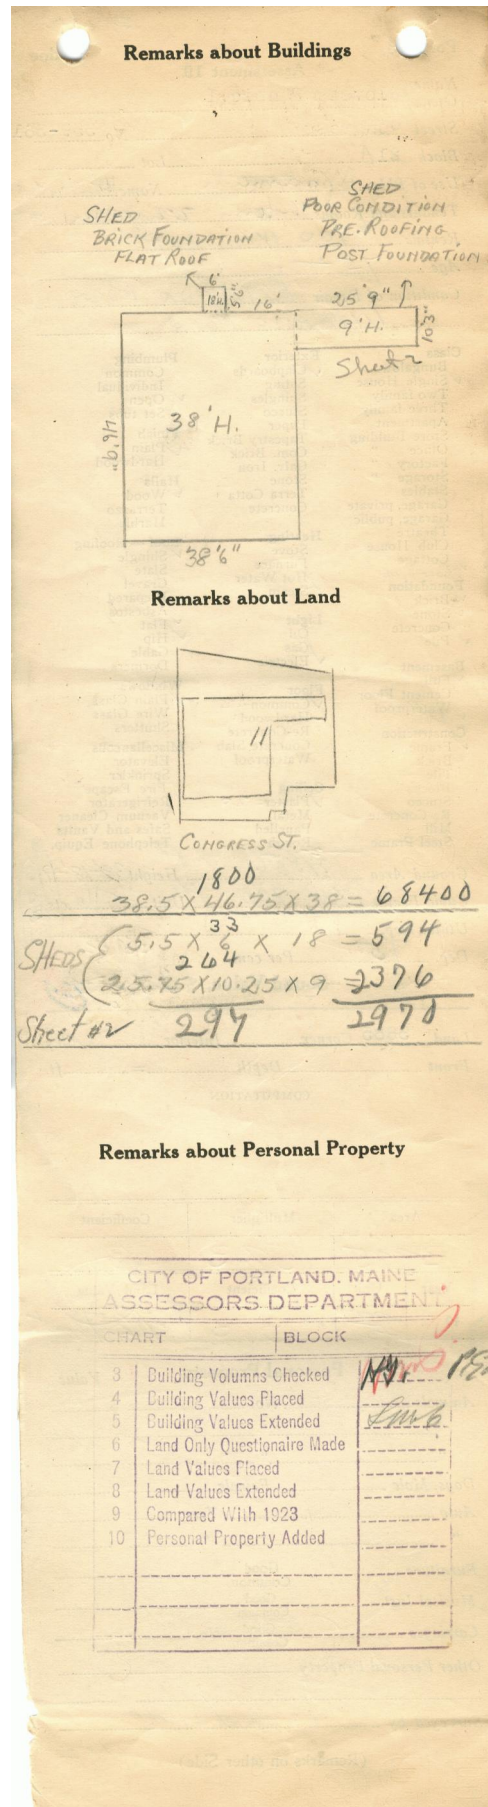 Remarks about Buildings
SHED
BRICK FOUNDATION
FLAT ROOF
SHED
POOR CONDITION
PRE. ROOFING
POST FOUNDATION
6'
18'H.
5'6"
16'
25'9"
9'H.
10'3"
Sheet 2
38'H.
46'9"
38'6"
Remarks about Land
11
CONGRESS ST.
1800
38.5 X 46.75 X 38 = 68400
SHEDS
33
5.5 X 6 X 18 = 594
264
25.75 X 10.25 X 9 = 2376
Sheet #2
297
2970
Remarks about Personal Property
CITY OF PORTLAND, MAINE
ASSESSORS DEPARTMENT
CHART BLOCK
3 Building Volumns Checked
4 Building Values Placed
5 Building Values Extended
6 Land Only Questionaire Made
7 Land Values Placed
8 Land Values Extended
9 Compared With 1923
10 Personal Property Added